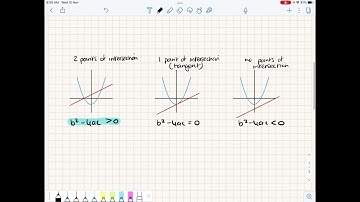 2 points of intersection
1 point of intersection
(tangent)
no points of
intersection
b² - 4ac > 0
b² - 4ac = 0
b² - 4ac < 0